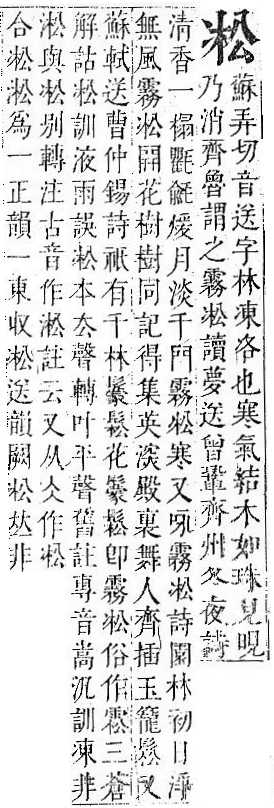 凇
蘇弄切音送字林凍洛也寒氣結木如珠見晛
乃消齊魯謂之霧凇讀夢送曾鞏齊州冬夜詩
清香一榻氍毹煖月淡千門霧凇寒又咏霧凇詩園林初日淨
無風霧凇開花樹樹同記得集英深殿裏舞人齊插玉籠鬆又
蘇軾送曹仲錫詩祇有千林鬖鬆花鬖鬆卽霧凇俗作䨦三蒼
解詁凇訓液雨誤凇本去聲轉叶平聲舊註專音嵩汎訓凍非
淞與凇別轉注古音作淞註云又从仌作凇
合淞凇爲一正韻一東收凇送韻闕凇𠀤非